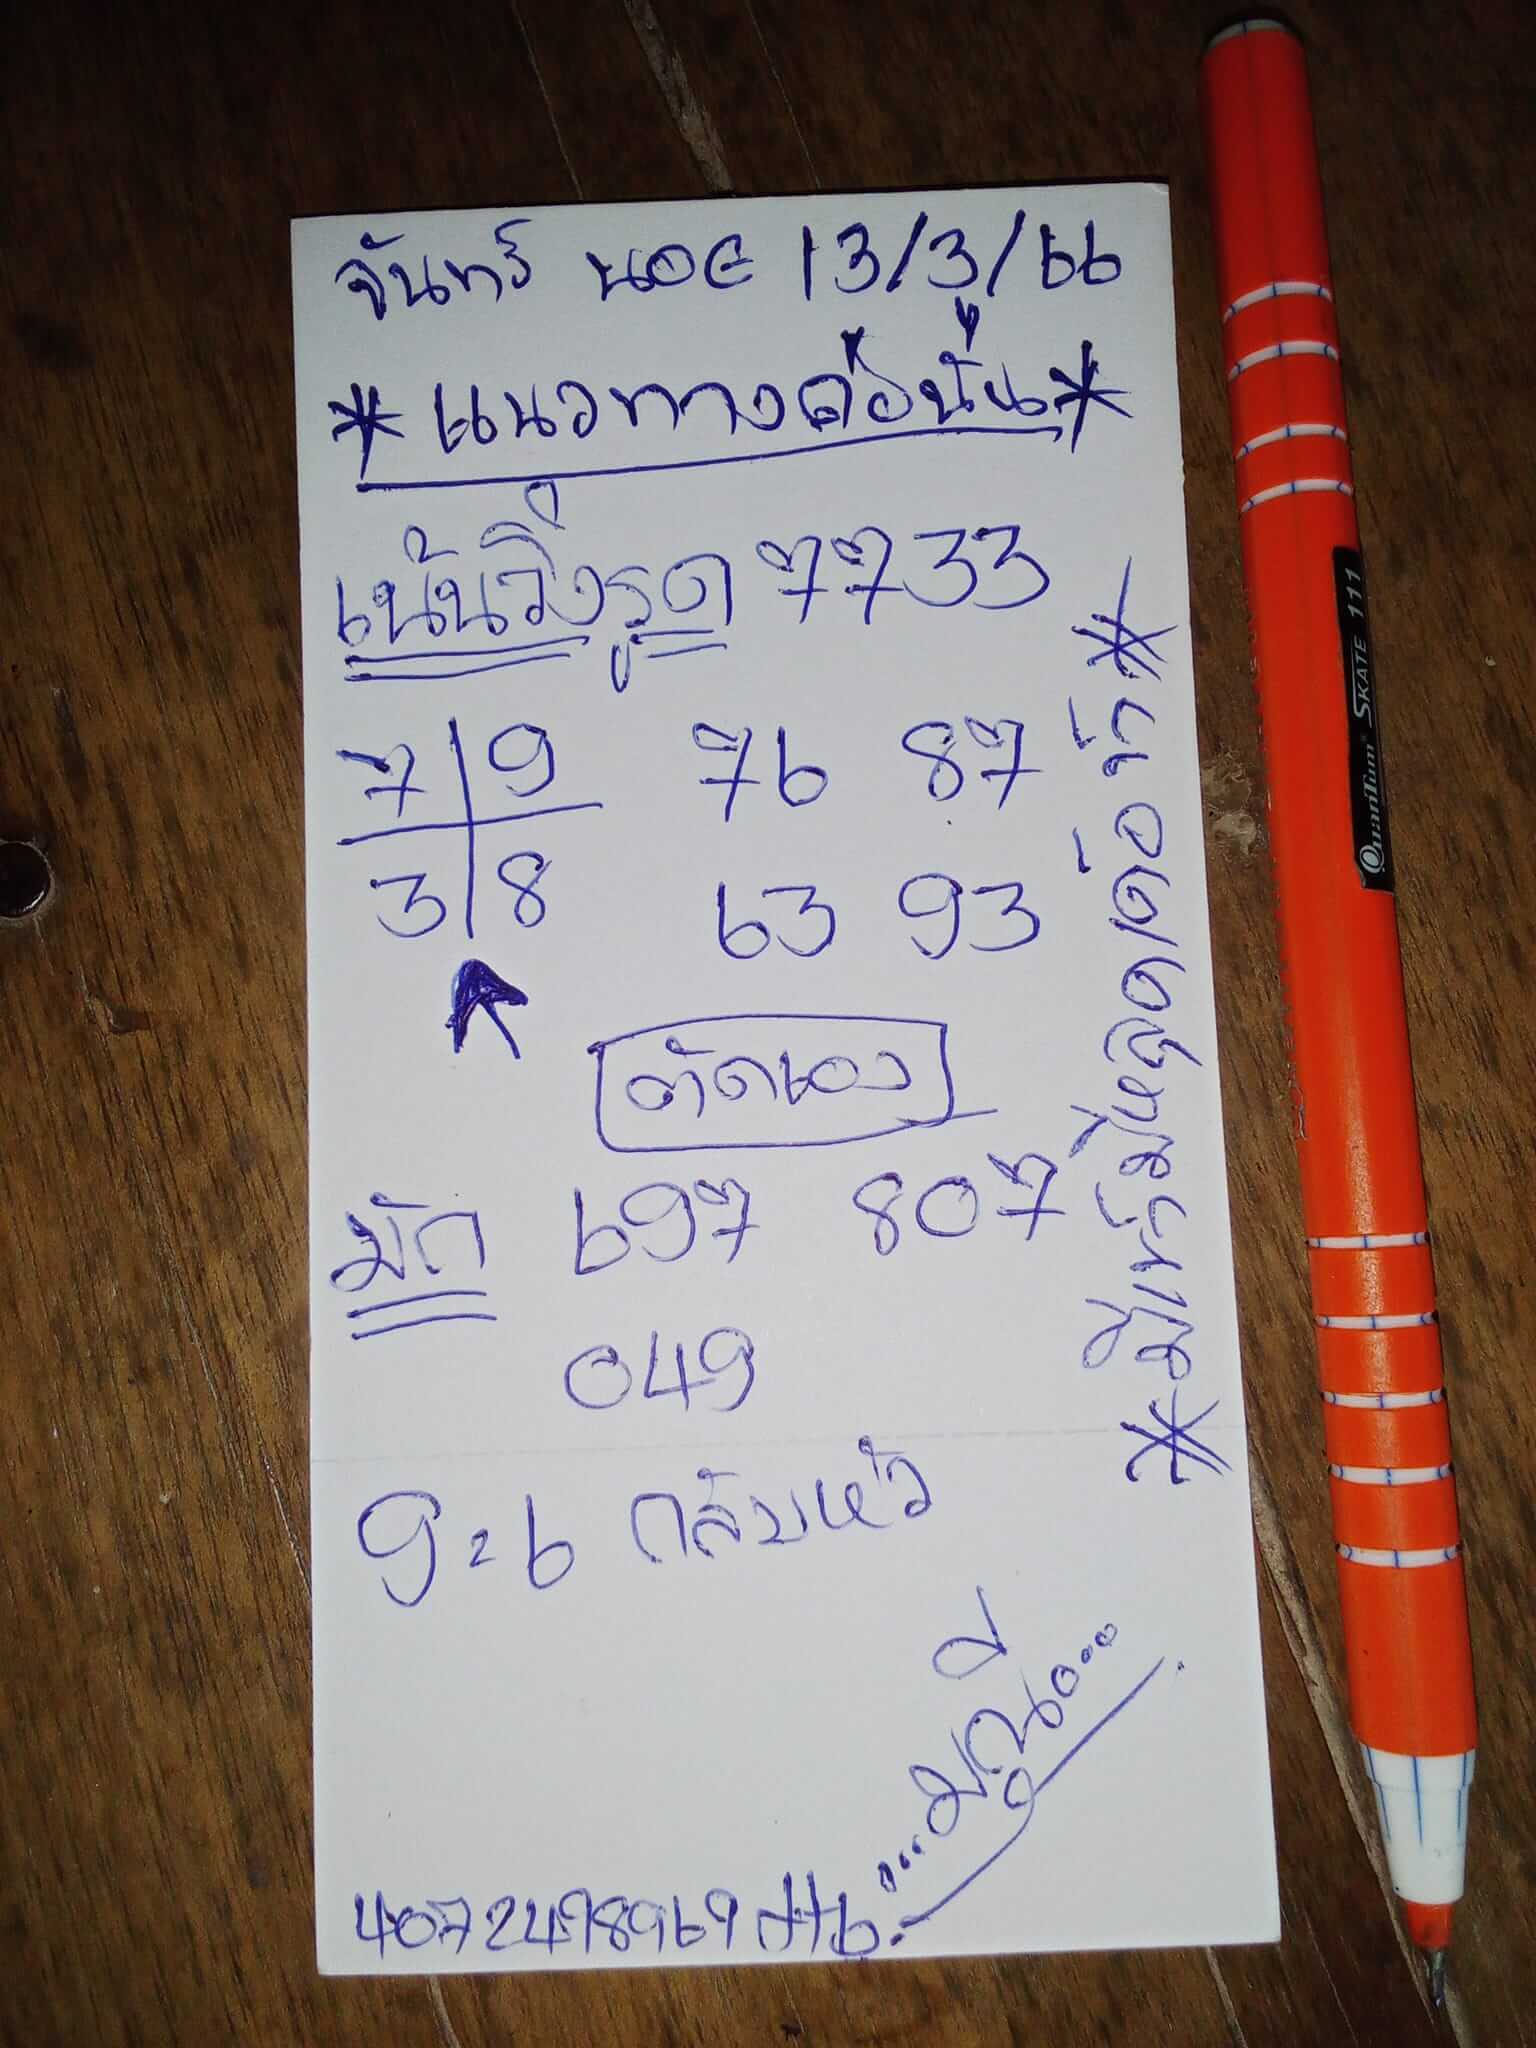 จันทร์ นอย 13/3/66
*แนวทางค่อนั่น*
เน้นวิ่งรูด 7733
7 9 76 87
3 8 63 93
ตัดเอง
มัก 697 807
049
9=6 กลับหัว
...มณี...
*มีเข้ามีหลุดเด้อจ้า*
Quantum SKATE 111